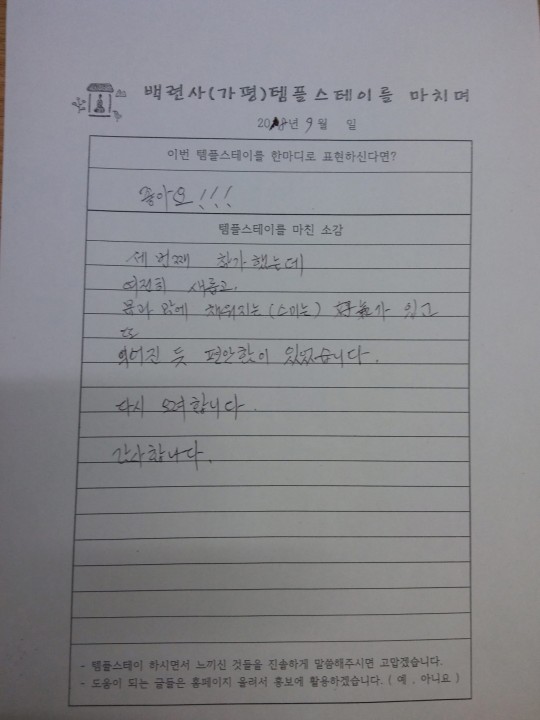 백련사(가평)템플스테이를 마치며
2018년 9월 일
이번 템플스테이를 한마디로 표현하신다면?
좋아요!!!
템플스테이를 마친 소감
세 번째 참가했는데
여전히 새롭고,
몸과 맘에 채워지는(스미는) 가 있고
또
익어진 듯 편안함이 있었습니다.
다시 오려합니다.
감사합니다.
- 템플스테이 하시면서 느끼신 것들을 진솔하게 말씀해주시면 고맙겠습니다.
- 도움이 되는 글들은 홈페이지 올려서 홍보에 활용하겠습니다. ( 예 , 아니요 )